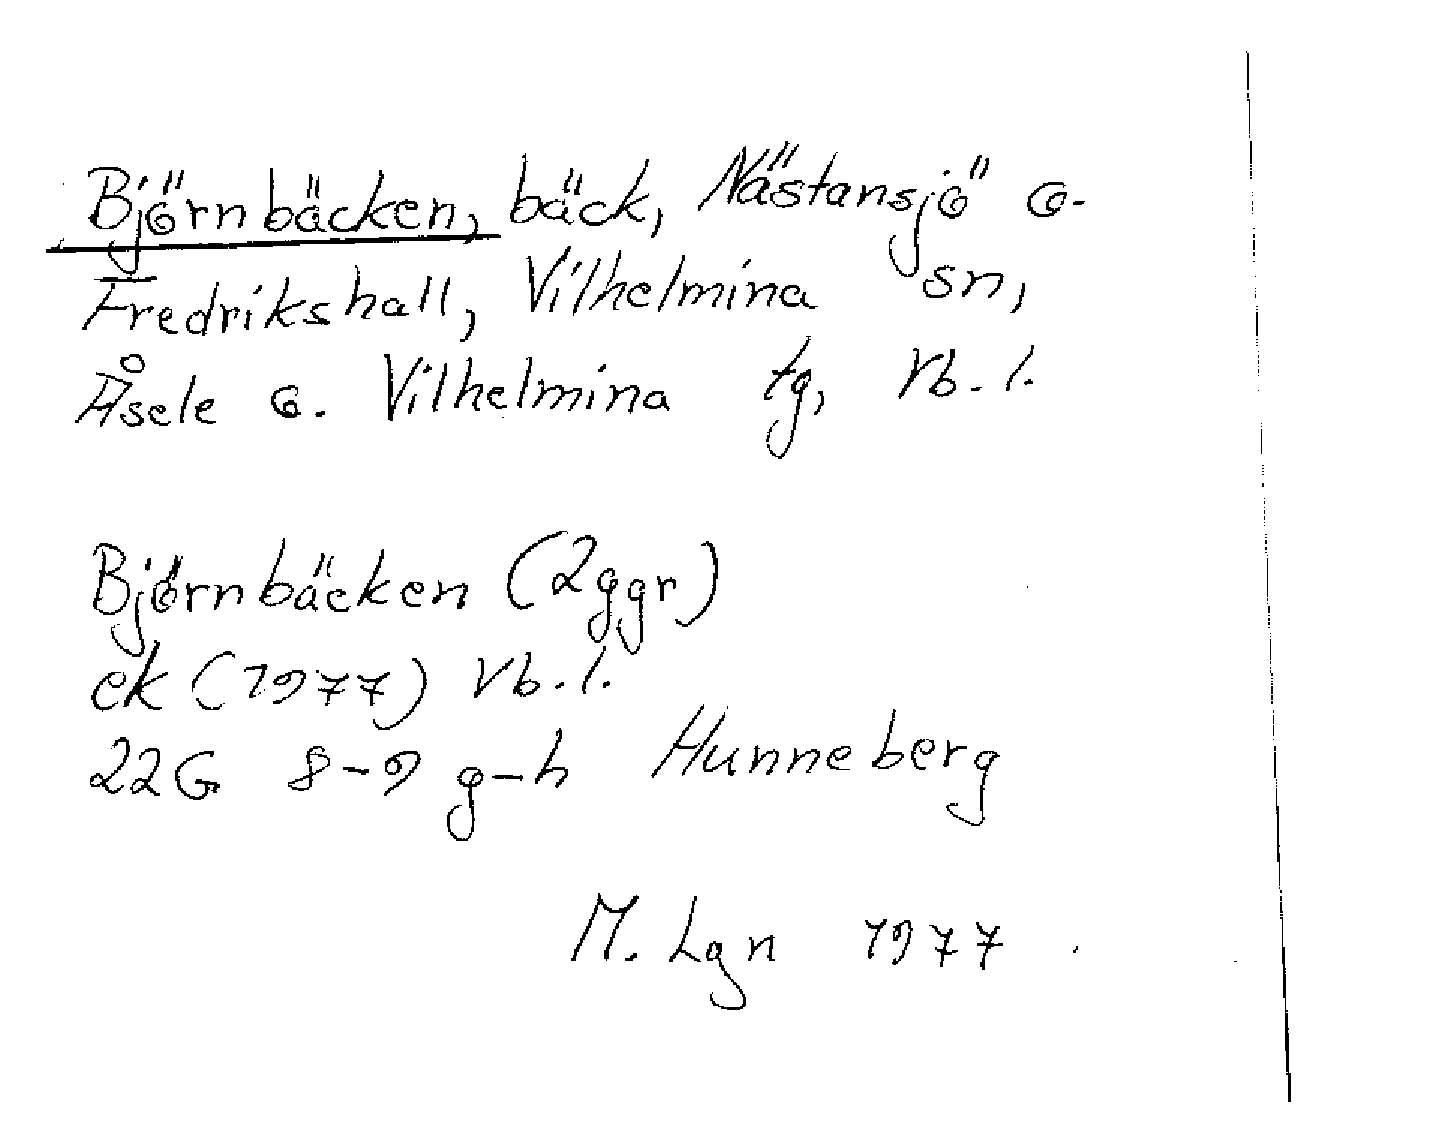 Björnbäcken, bäck, Nästansjö o.
Fredrikshall, Vilhelmina sn,
Åsele o. Vilhelmina tg, Vb. l.
Björnbäcken (2ggr)
ek (1977) Vb. l.
22G 8-9 g-h Hunneberg
M. Lgn 1977